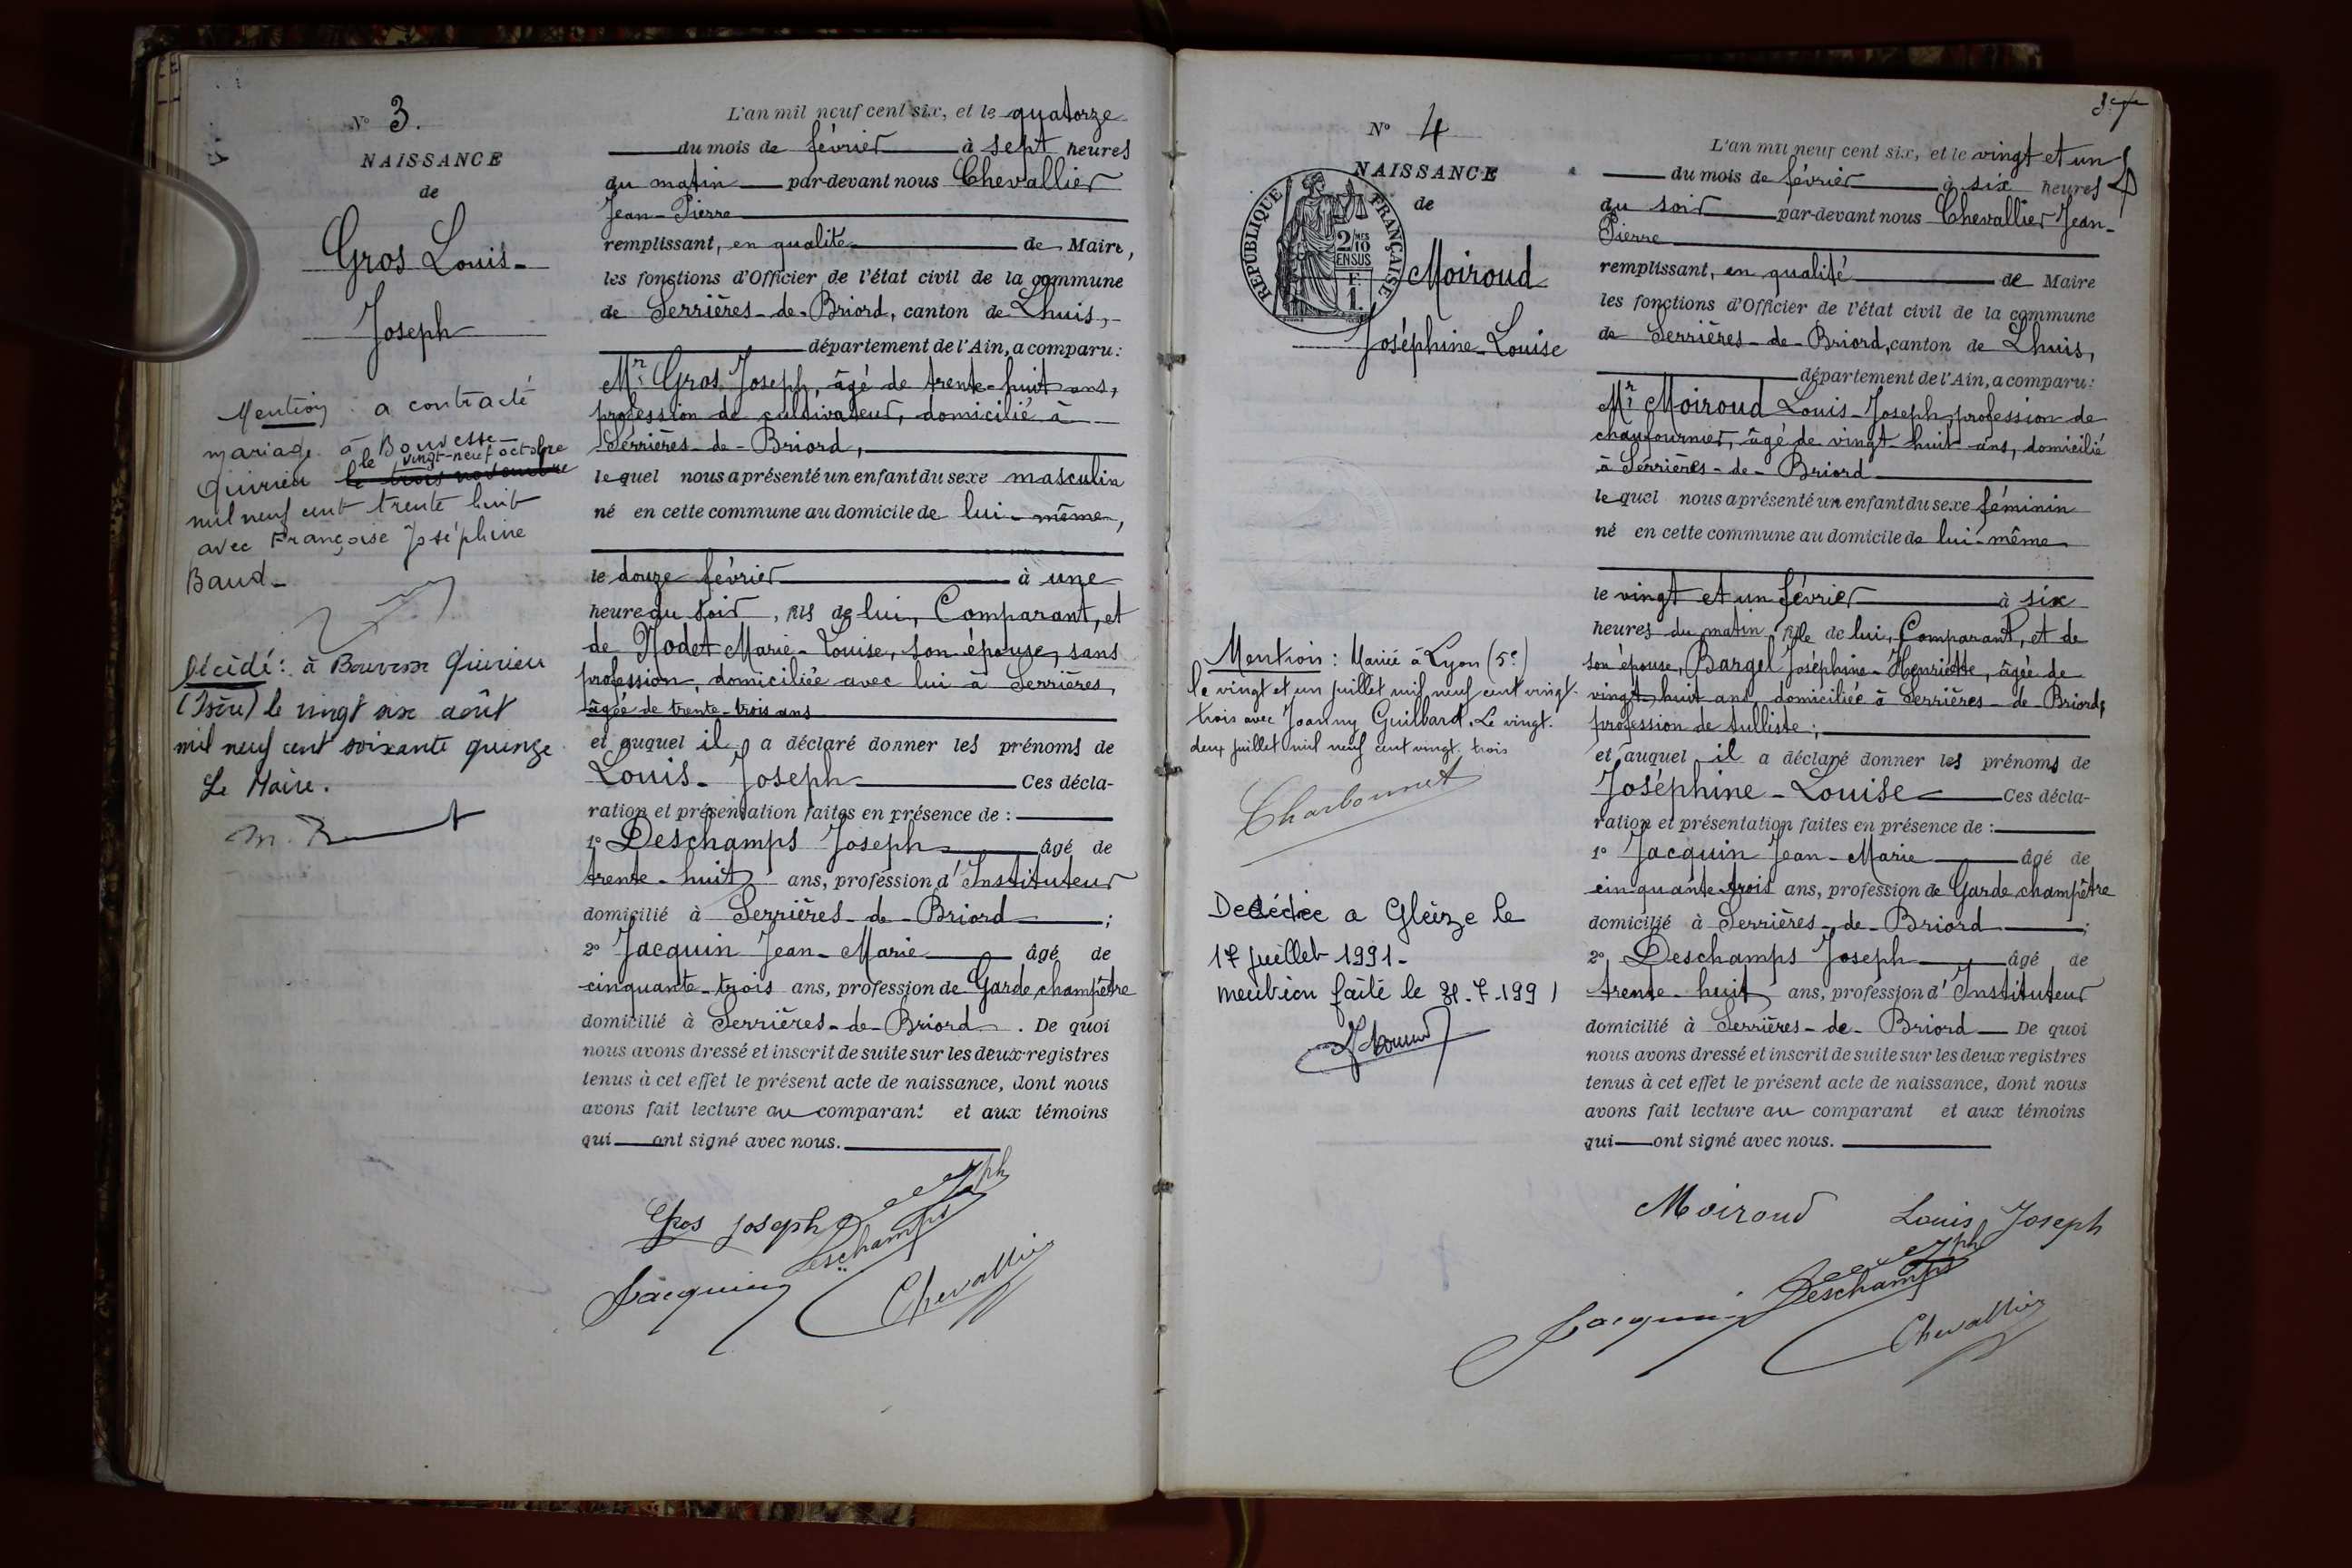 N° 3.
NAISSANCE
de
Gros Louis-
Joseph
Mention : a contracté
mariage à Bouvesse-
Quirieu le vingt-neuf octobre
le trois novembre
mil neuf cent trente huit
avec Françoise Joséphine
Baud-
Décédé : à Bouvesse Quirieu
(Isère) le vingt six août
mil neuf cent soixante quinze
Le Maire.
L'an mil neuf cent six, et le quatorze
du mois de février à sept heures
du matin par-devant nous Chevallier
Jean-Pierre
remplissant, en qualité de Maire,
les fonctions d'Officier de l'état civil de la commune
de Serrières-de-Briord, canton de Lhuis,-
département de l'Ain, a comparu :
Mr. Gros Joseph, âgé de trente-huit ans,
profession de cultivateur, domicilié à
Serrières-de-Briord,
lequel nous a présenté un enfant du sexe masculin
né en cette commune au domicile de lui-même,
le douze février à une
heure du soir, fils de lui, Comparant, et
de Nodet Marie-Louise, son épouse, sans
profession, domiciliée avec lui à Serrières,
âgée de trente-trois ans
et auquel il a déclaré donner les prénoms de
Louis-Joseph Ces décla-
ration et présentation faites en présence de :
1° Deschamps Joseph âgé de
trente-huit ans, profession d'Instituteur
domicilié à Serrières-de-Briord ;
2° Jacquin Jean-Marie âgé de
cinquante-trois ans, profession de Garde champêtre
domicilié à Serrières-de-Briord . De quoi
nous avons dressé et inscrit de suite sur les deux registres
tenus à cet effet le présent acte de naissance, dont nous
avons fait lecture au comparant et aux témoins
qui ont signé avec nous.
Gros Joseph
Deschamps Jph
Jacquin
Chevallier
N° 4
NAISSANCE
de
RÉPUBLIQUE FRANÇAISE
2/10 MES
EN SUS
F.
1
Moiroud
Joséphine-Louise
Mention : Mariée à Lyon (5e)
le vingt et un juillet mil neuf cent vingt-
trois avec Joanny Guillard. Le vingt-
deux juillet mil neuf cent vingt-trois
Charbonnet
Decédée a Gleize le
17 juillet 1991-
mention faite le 31-7-1991
L'an mil neuf cent six, et le vingt et un
du mois de février à six heures
du soir par-devant nous Chevallier Jean-
Pierre
remplissant, en qualité de Maire
les fonctions d'Officier de l'état civil de la commune
de Serrières-de-Briord, canton de Lhuis,
département de l'Ain, a comparu :
Mr. Moiroud Louis-Joseph, profession de
chaufournier, âgé de vingt-huit ans, domicilié
à Serrières-de-Briord
lequel nous a présenté un enfant du sexe féminin
né en cette commune au domicile de lui-même
le vingt et un février à six
heures du matin, fille de lui, Comparant, et de
son épouse, Bargel Joséphine-Henriette, âgée de
vingt-huit ans, domiciliée à Serrières-de-Briord,
profession de tulliste ;
et auquel il a déclaré donner les prénoms de
Joséphine-Louise Ces décla-
ration et présentation faites en présence de :
1° Jacquin Jean-Marie âgé de
cinquante-trois ans, profession de Garde champêtre
domicilié à Serrières-de-Briord ;
2° Deschamps Joseph âgé de
trente-huit ans, profession d'Instituteur
domicilié à Serrières-de-Briord De quoi
nous avons dressé et inscrit de suite sur les deux registres
tenus à cet effet le présent acte de naissance, dont nous
avons fait lecture au comparant et aux témoins
qui ont signé avec nous.
Moiroud Louis Joseph
Jacquin Deschamps Jph
Chevallier